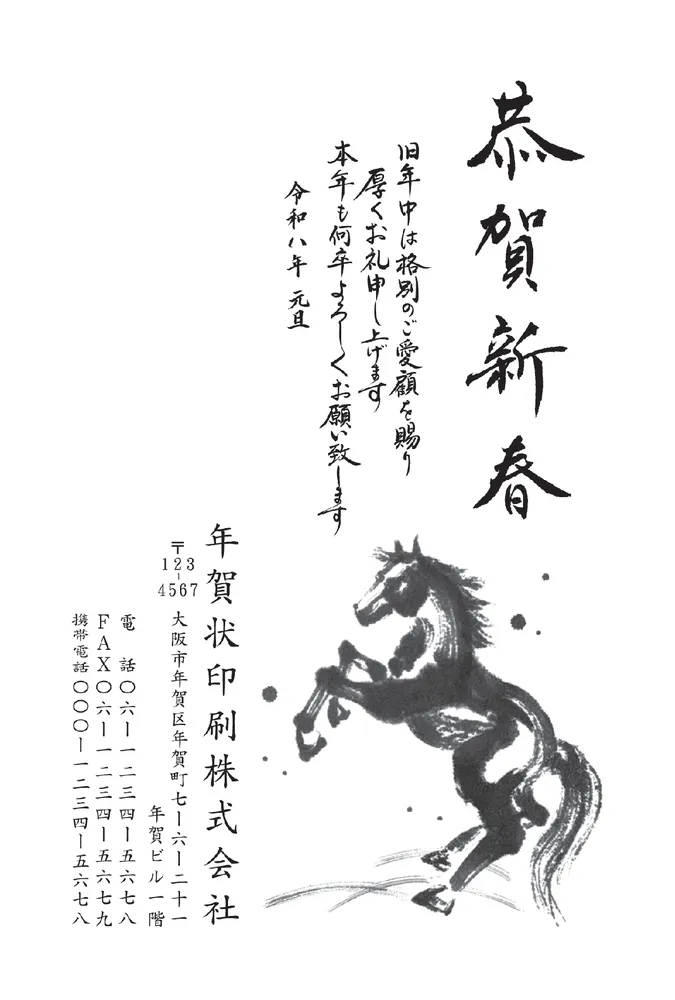 恭賀新春
旧年中は格別のご愛顧を賜り
厚くお礼申し上げます
本年も何卒よろしくお願い致します
令和八年 元旦
年賀状印刷株式会社
〒123-4567
大阪市年賀区年賀町七ー六ー二十一
年賀ビル一階
電 話〇六ー一二三四ー五六七八
FAX〇六ー一二三四ー五六七九
携帯電話〇〇〇ー一二三四ー五六七八